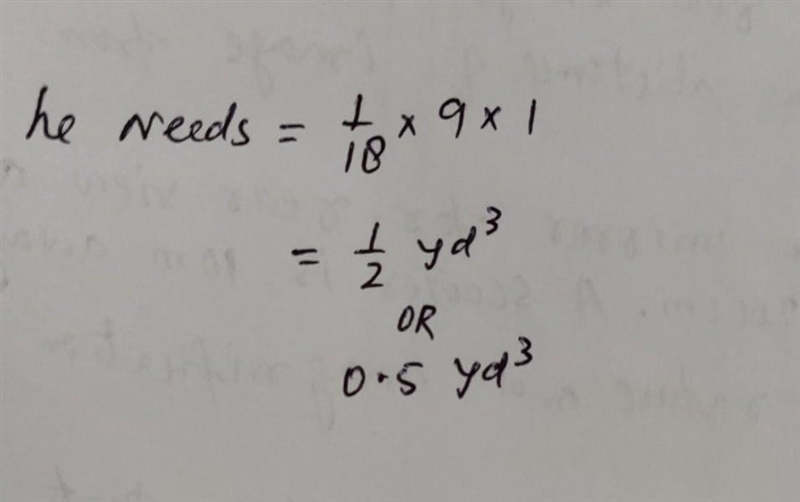 he needs = 1/18 × 9 × 1
= 1/2 yd³
OR
0.5 yd³